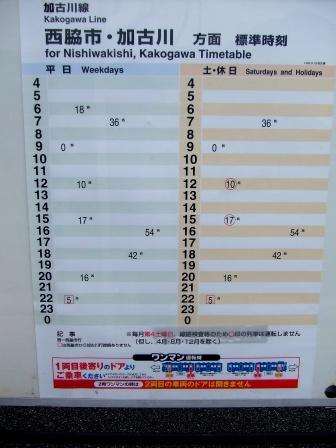 加古川線
Kakogawa Line
西脇市・加古川 方面 標準時刻
for Nishiwakishi, Kakogawa Timetable
平日 Weekdays 土・休日 Saturdays and Holidays
4 4
5 5
6 18 6
7 36 7 36
8 8
9 0 9 0
10 10
11 11
12 10 12 10
13 13
14 14
15 17 15 17
16 54 16 54
17 17
18 42 18 42
19 19
20 16 20 16
21 21
22 5 22 5
23 23
0 0
記事
※毎月第4土曜日、線路検査等のため○印の列車は運転しません
(但し、4月・8月・12月を除く)
ワンマン運転時
1両目後寄りのドアより
ご乗車ください
2両ワンマンの時は 2両目の車両のドアは開きません